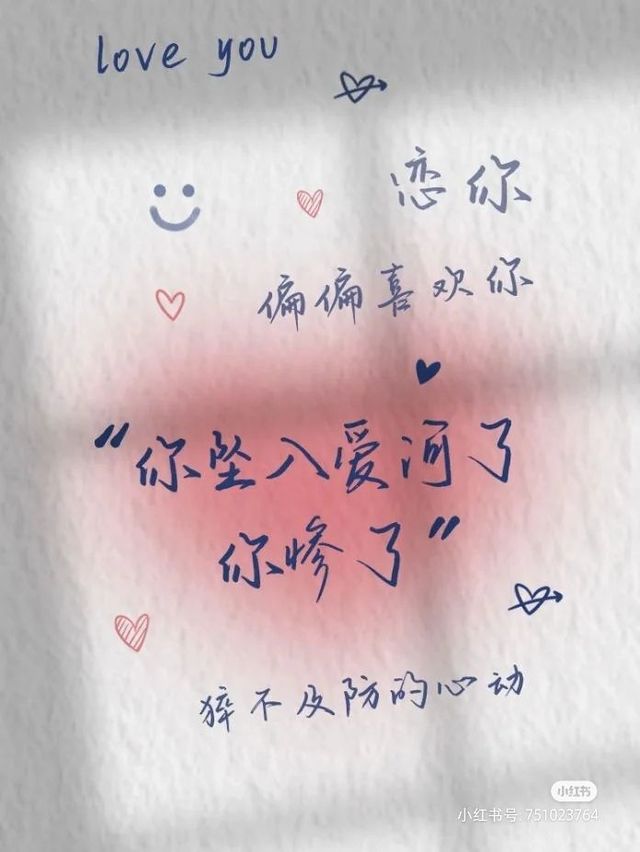 love you
恋你
偏偏喜欢你
“你坠入爱河了
你惨了”
猝不及防的心动
小红书
小红书号:751023764